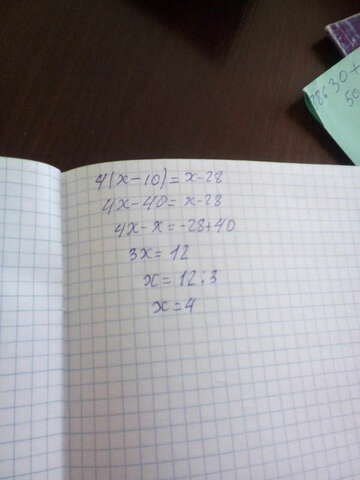 4(x-10)=x-28
4x-40=x-28
4x-x=-28+40
3x=12
x=12:3
x=4
30+
50